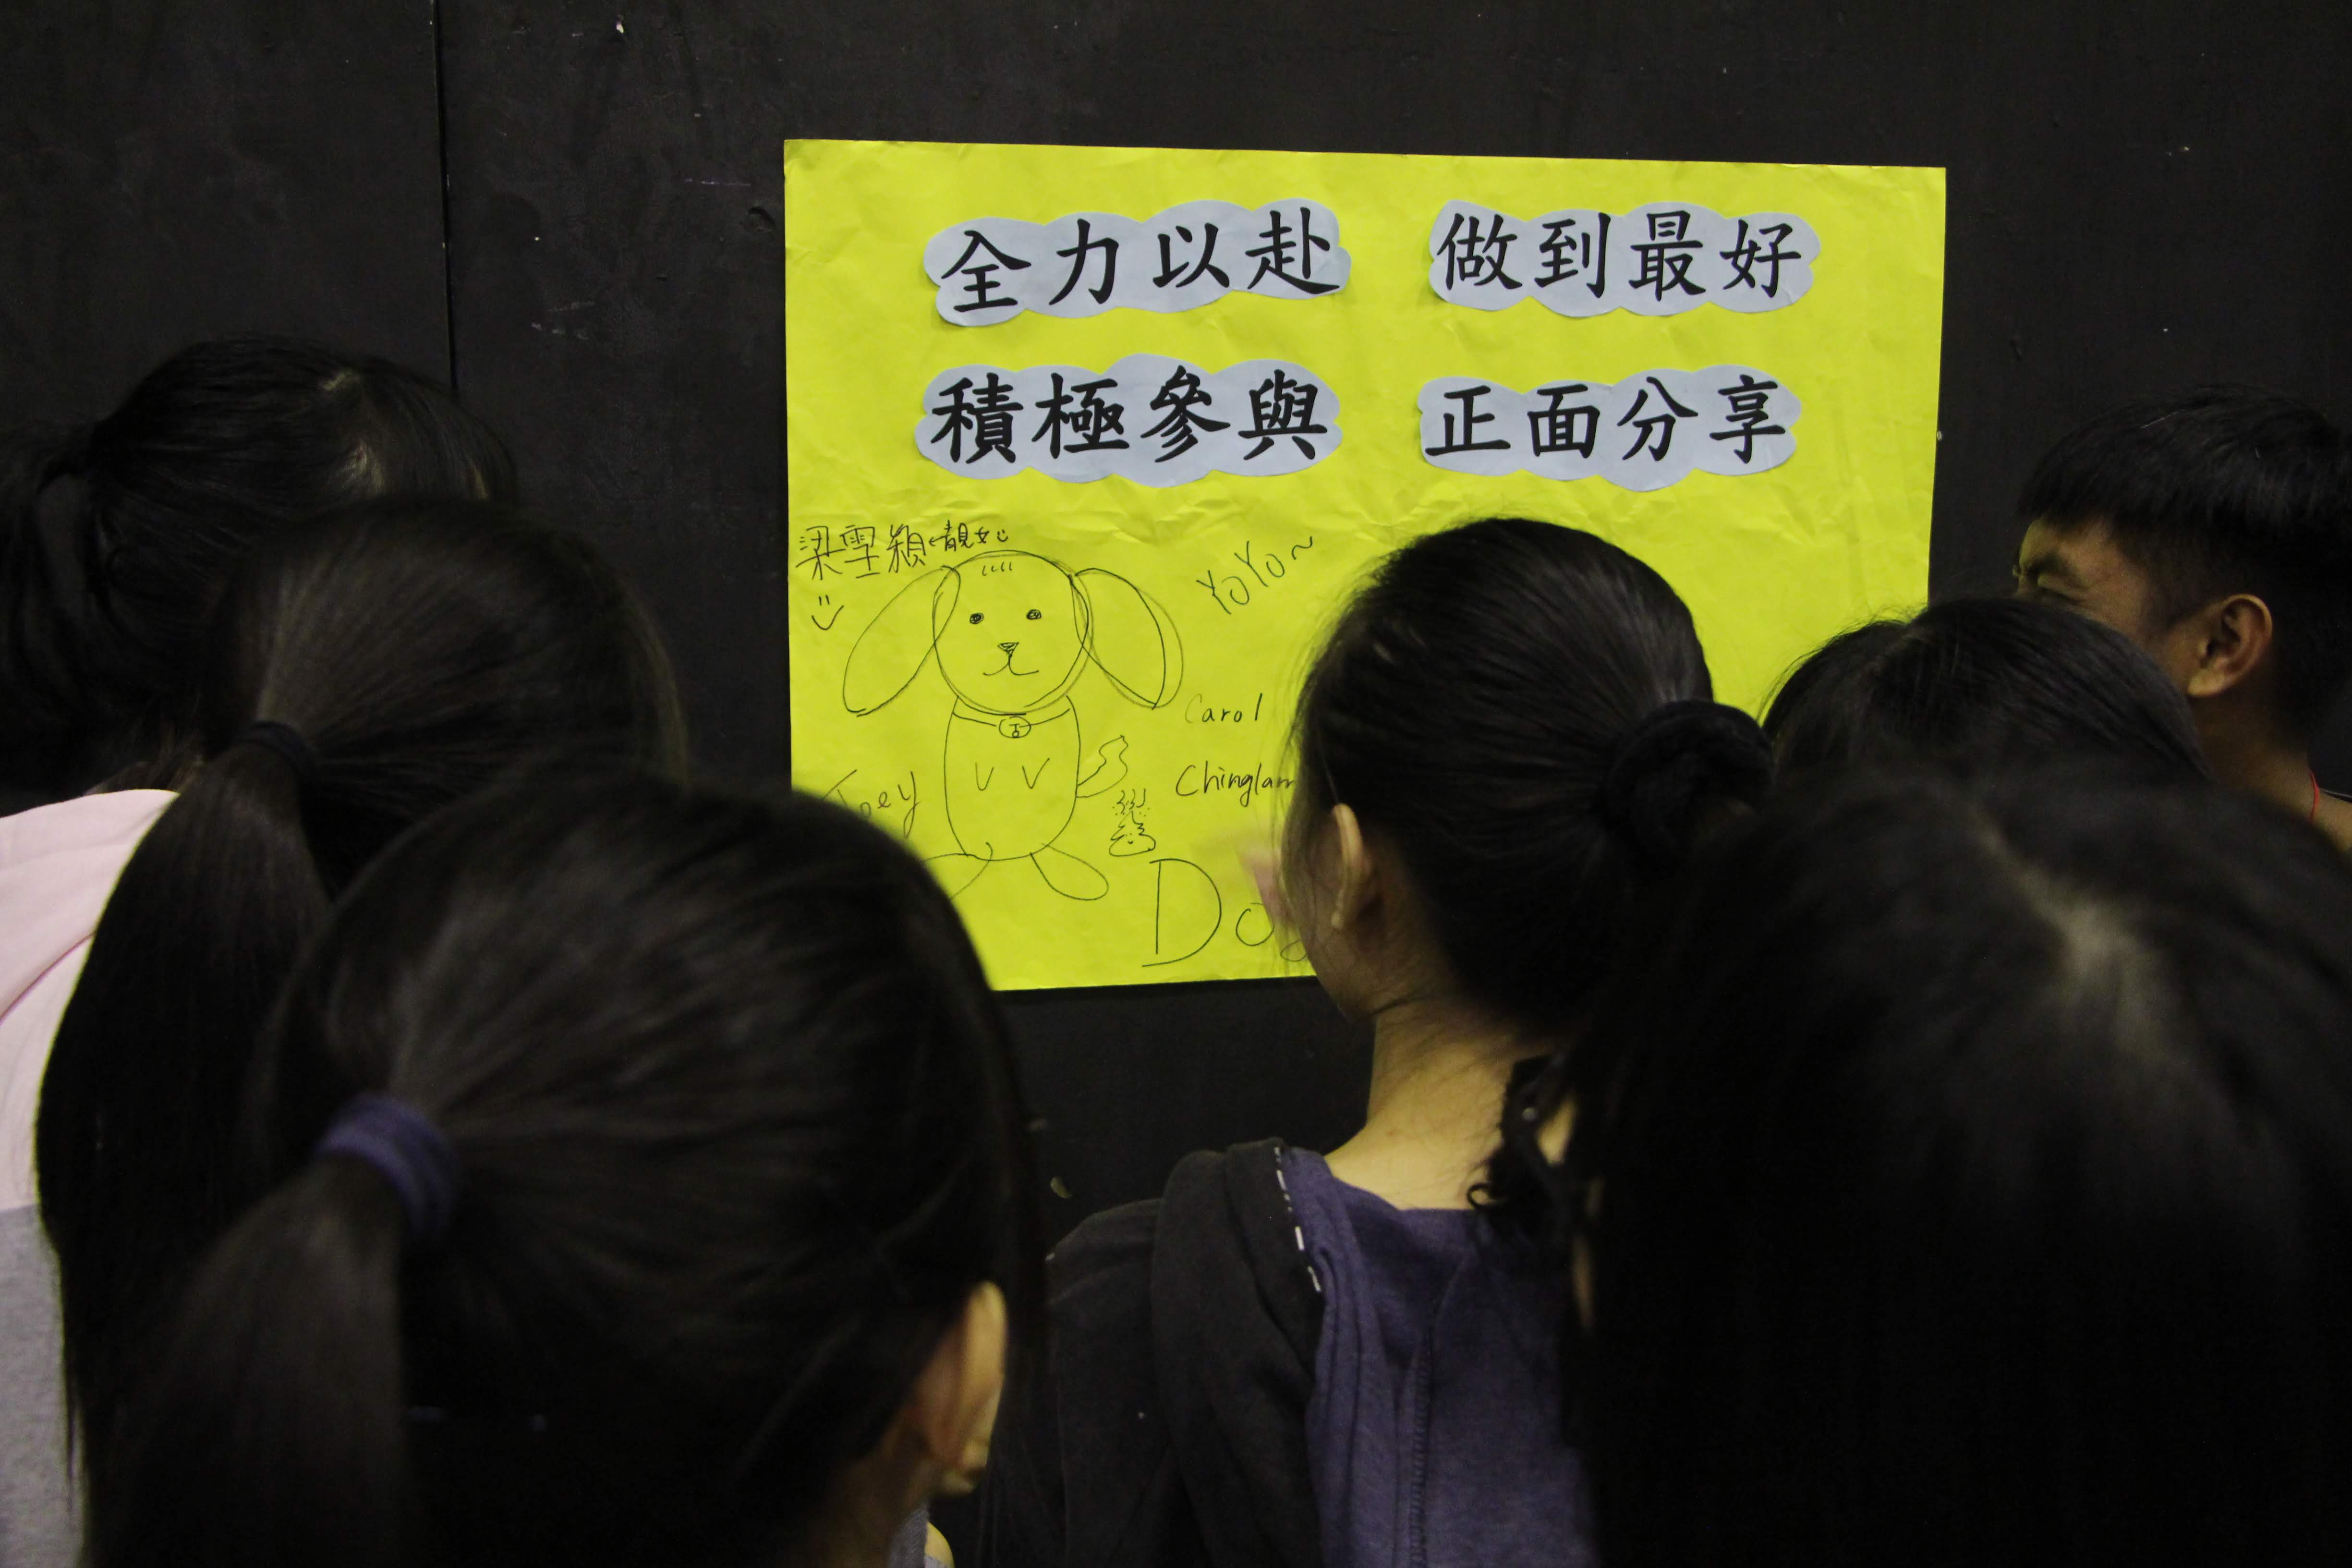 全力以赴 做到最好
積極參與 正面分享
梁雪穎←靚女
YoYo~
Carol
Joey
Chinglam
Dog